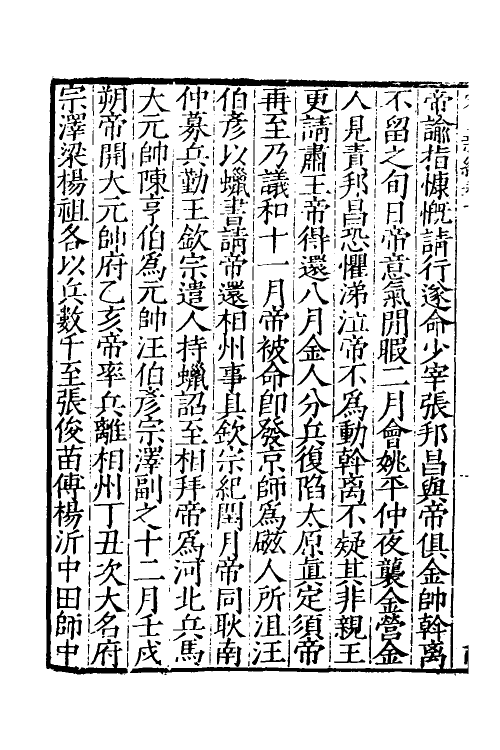 帝諭指慷慨請行遂命少宰張邦昌與帝俱金帥斡离
不留之旬日帝意氣閒暇二月會姚平仲夜襲金營金
人見責邦昌恐懼涕泣帝不爲動斡离不疑其非親王
更請肅王帝得還八月金人分兵復陷太原眞定須帝
再至乃議和十一月帝被命卽發京師爲磁人所沮汪
伯彥以蠟書請帝還相州事具欽宗紀閏月帝同耿南
仲募兵勤王欽宗遣人持蠟詔至相拜帝爲河北兵馬
大元帥陳亨伯爲元帥汪伯彥宗澤副之十二月壬戌
朔帝開大元帥府乙亥帝率兵離相州丁丑次大名府
宗澤梁楊祖各以兵數千至張俊苗傅楊沂中田師中